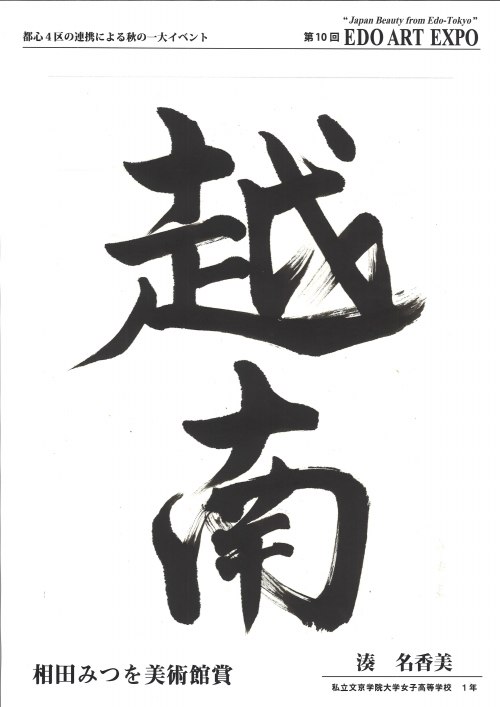 "Japan Beauty from Edo-Tokyo"
都心4区の連携による秋の一大イベント
第10回 EDO ART EXPO
越
南
相田みつを美術館賞
湊 名香美
私立文京学院大学女子高等学校 1年